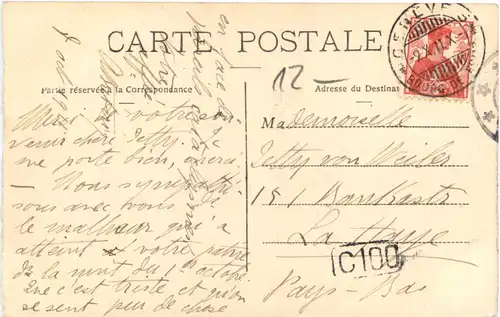 CARTE POSTALE
Partie réservée à la Correspondance
Adresse du Destinat
12 —
GENÈVE
9.X.11.X
BOURG DE
Merci de votre sou
venir chère Jetty. Je
me porte bien, merci
— Nous sympathi
sons avec vous
le malheur qui a
atteint votre patrie
de la nuit du 1 octobre
Que c'est triste et qu'on
se sent peu de chose
en face de
Mademoiselle
Jetty von Weiler
191 Bankastr
La Haye
Pays-Bas
C100